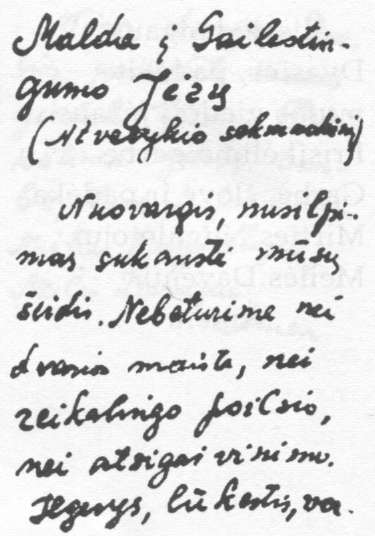 Malda į Gailestin-
gumo Jėzų
(Atvelykio sekmadienį)
Nuovargis, nusilpi-
mas sukaustė mūsų
širdis. Nebeturime nei
dvasios maisto, nei
reikalingo poilsio,
nei atsigaivinimo.
Ilgesys, lūkestis, va-